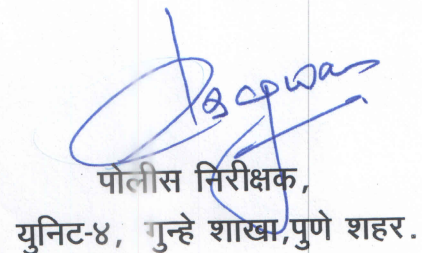 पोलीस निरीक्षक,
युनिट-४, गुन्हे शाखा,पुणे शहर.